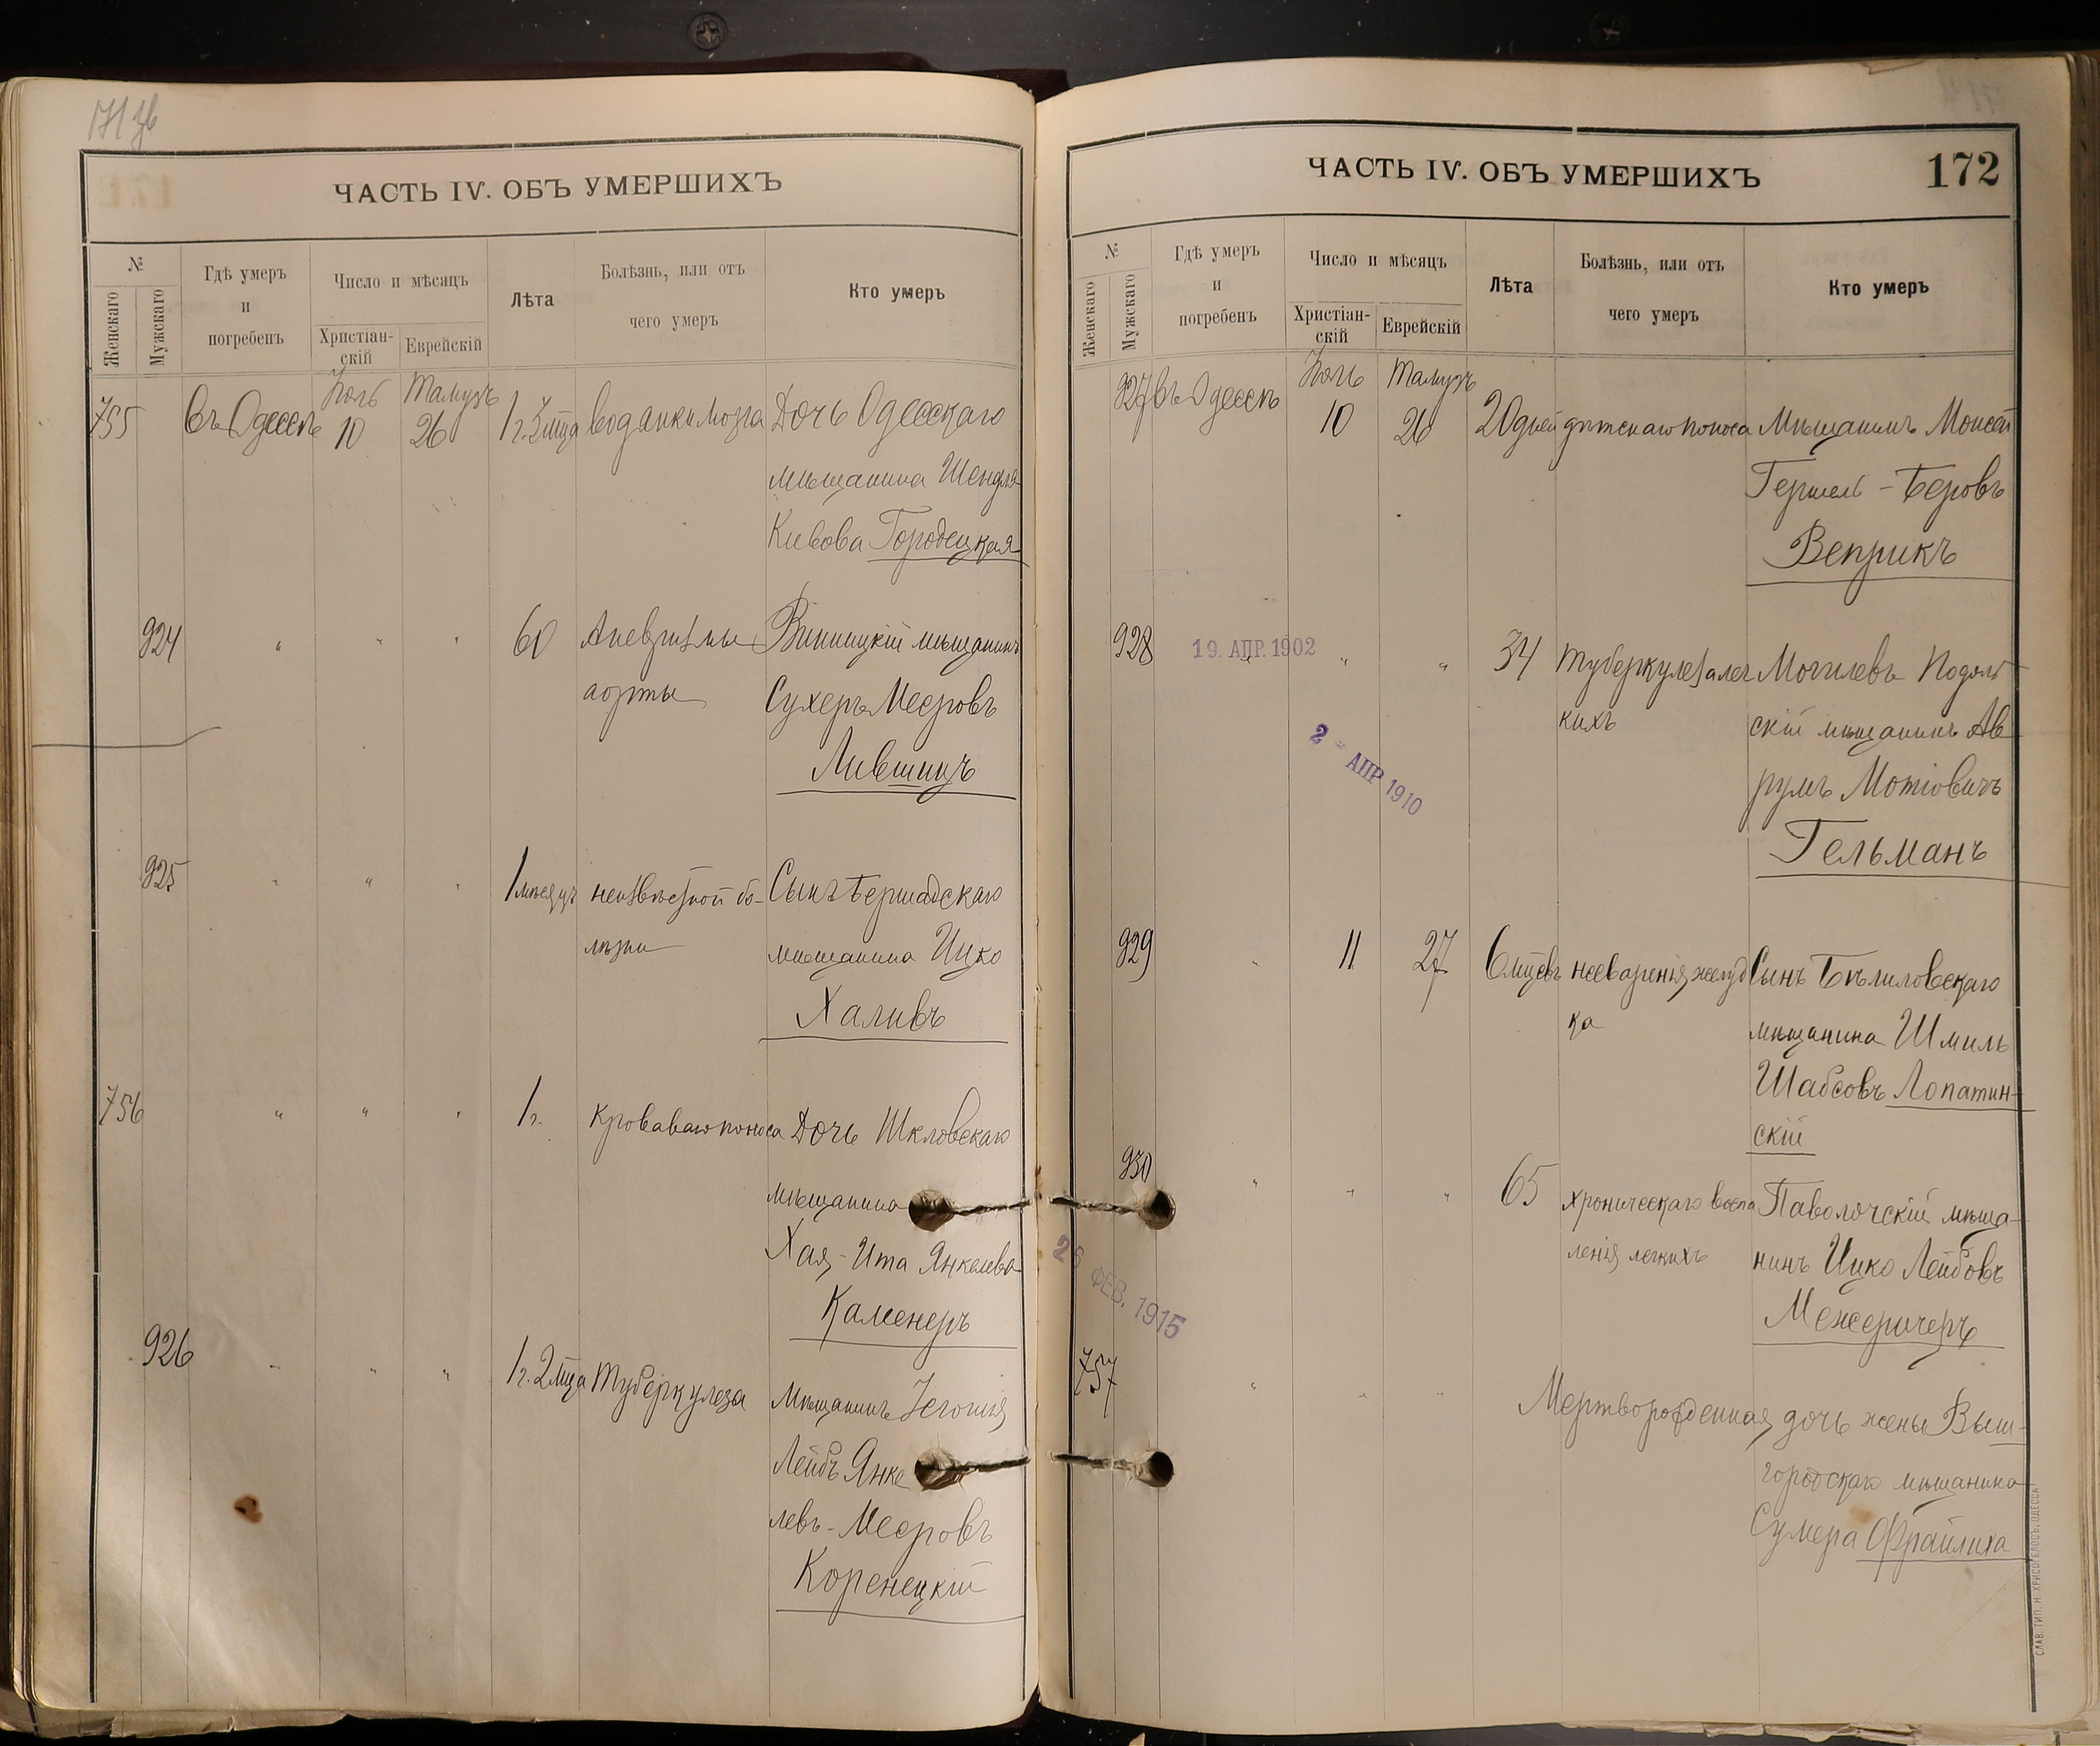 ЧАСТЬ IV. ОБЪ УМЕРШИХЪ
№
Женскаго
Мужскаго
Гдѣ умеръ
и
погребенъ
Число и мѣсяцъ
Христіан-
скій
Еврейскій
Лѣта
Болѣзнь, или отъ
чего умеръ
Кто умеръ
Іюль Тамузъ
755 Въ Одессѣ 10 26 1 г. 3 мца водянки мозга Дочь Одесскаго
мѣщанина Шендля
Кивова Городецкая
924 " " " 60 Аневризмы Винницкій мѣщанинъ
аорты Сухеръ Мееровъ
Лившицъ
925 " " " 1 мѣсяцъ неизвѣстной бо- Сынъ Бершадскаго
лѣзни мѣщанина Ицко
Халивъ
756 " " " 1 г. кроваваго поноса Дочь Шкловскаго
мѣщанина
Хая-Ита Янкелева
Каменеръ
926 " " " 1 г. 2 мца Туберкулеза Мѣщанинъ
Лейбъ Янке
левъ-Мееровъ
Коренецкій
ЧАСТЬ IV. ОБЪ УМЕРШИХЪ
172
№
Женскаго
Мужскаго
Гдѣ умеръ
и
погребенъ
Число и мѣсяцъ
Христіан-
скій
Еврейскій
Лѣта
Болѣзнь, или отъ
чего умеръ
Кто умеръ
Іюль Тамузъ
927 Въ Одессѣ 10 26 20 дней дѣтскаго поноса Мѣщанинъ Моисей
Гершель-Беровъ
Веприкъ
928 19. АПР. 1902 " " " 34 туберкулеза лег Могилевъ Подоль
кихъ скій мѣщанинъ Ав
румъ Мотіовичъ
2 - АПР 1910
Гельманъ
929 " 11 27 6 мцевъ несваренія желуд Сынъ Бѣлиловскаго
ка мѣщанина Шмиль
Шабсовъ Лопатин-
скій
930 " " " 65 хроническаго воспа Паволочскій мѣща-
ленія легкихъ нинъ Ицко Лейбовъ
26 ФЕВ. 1915
Межеричеръ
757 " " " Мертворожденная дочь жены Выш-
городскаго мѣщанина
Сумера Фрайлиха
СЛАВ. ТИП. Н. ХРИСОГЕЛОСЪ. ОДЕССА